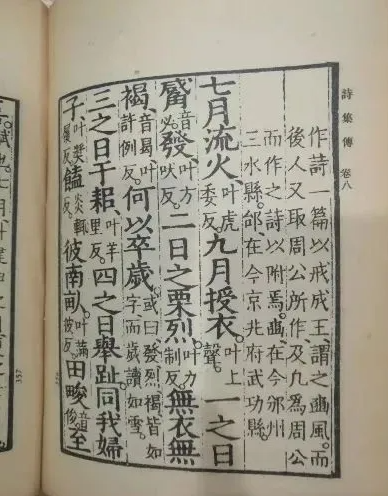 詩集傳 卷八
作詩一篇以戒成王謂之豳風。而
後人又取周公所作及凡爲周公
而作之詩以附焉。豳在今邠州
三水縣。邰在今京兆府武功縣。
七月流火、叶虎委反。九月授衣。叶上聲。一之日
觱音必發、叶方吠反。二日之栗烈、叶力制反。無衣無
褐、音曷、叶許例反。何以卒歲。或曰發烈褐皆如字而歲讀如雪。
三之日于耜、叶羊里反。四之日舉趾同我婦
子、叶奬履反。饁炎輒反。彼南畝。叶滿彼反。田畯音俊至